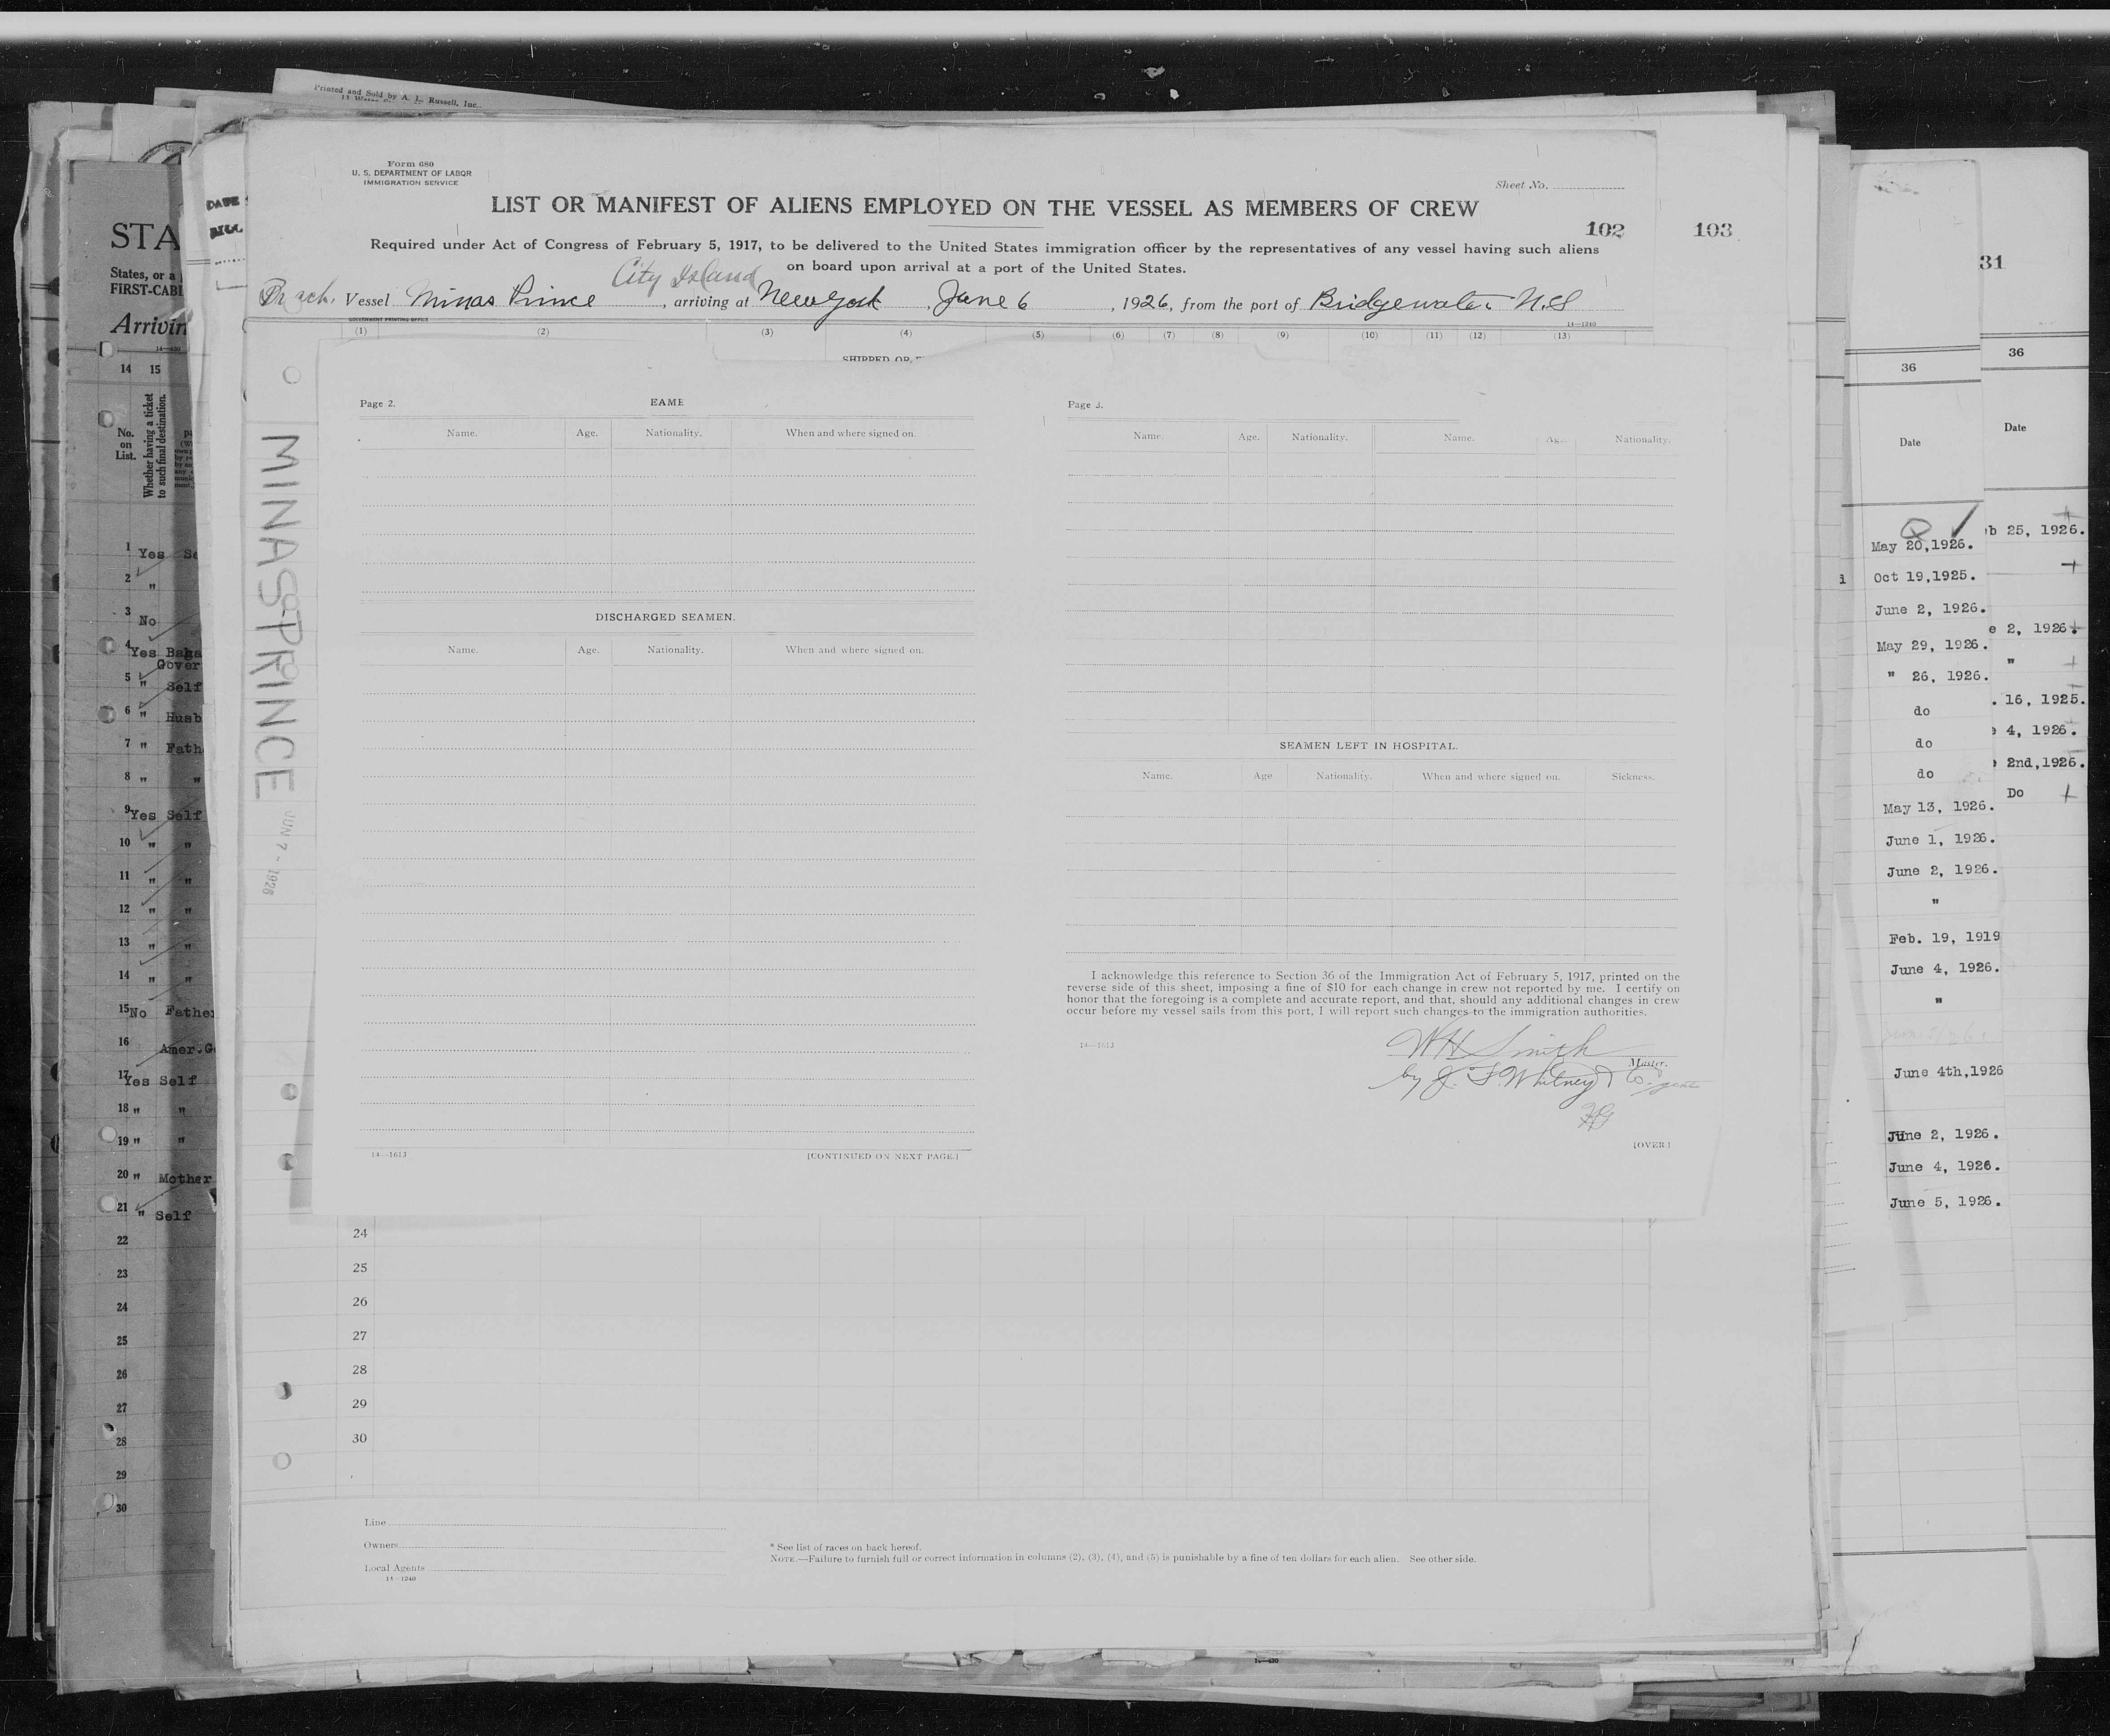 Printed and Sold by A. L. Russell, Inc.
Form 680
U. S. DEPARTMENT OF LABOR
IMMIGRATION SERVICE
Sheet No.
LIST OR MANIFEST OF ALIENS EMPLOYED ON THE VESSEL AS MEMBERS OF CREW
102 103
Required under Act of Congress of February 5, 1917, to be delivered to the United States immigration officer by the representatives of any vessel having such aliens
on board upon arrival at a port of the United States.
City Island
Br sch. Vessel Minas Prince, arriving at New York June 6, 1926, from the port of Bridgewater N.S
GOVERNMENT PRINTING OFFICE
14—1240
(1) (2) (3) (4) (5) (6) (7) (8) (9) (10) (11) (12) (13)
SHIPPED OR
MINAS PRINCE
JUN 7 - 1926
Page 2. EAME
Name. Age. Nationality. When and where signed on.
DISCHARGED SEAMEN.
Name. Age. Nationality. When and where signed on.
14—1613 [CONTINUED ON NEXT PAGE.]
Page 3.
Name. Age. Nationality. Name. Ag. Nationality.
SEAMEN LEFT IN HOSPITAL.
Name. Age Nationality. When and where signed on. Sickness.
I acknowledge this reference to Section 36 of the Immigration Act of February 5, 1917, printed on the
reverse side of this sheet, imposing a fine of $10 for each change in crew not reported by me. I certify on
honor that the foregoing is a complete and accurate report, and that, should any additional changes in crew
occur before my vessel sails from this port, I will report such changes to the immigration authorities.
14—1613
W H Smith
Master.
by J. F. Whitney & Co.
[OVER]
24
25
26
27
28
29
30
Line
Owners
Local Agents
14—1240
* See list of races on back hereof.
NOTE.—Failure to furnish full or correct information in columns (2), (3), (4), and (5) is punishable by a fine of ten dollars for each alien. See other side.
STA
States, or a
FIRST-CABI
Arrivin
14—430
14 15
No.
on
List.
Whether having a ticket
to such final destination.
1 Yes Se
2 "
3 No
4 Yes Baga
Gover
5 " Self
6 " Husb
7 " Fath
8 " "
9 Yes Self
10 " "
11 " "
12 " "
13 " "
14 " "
15 No Father
16 Amer.G
17 Yes Self
18 " "
19 " "
20 " Mother
21 " Self
22
23
24
25
26
27
28
29
30
36
Date
May 20,1926.
Oct 19,1925.
June 2, 1926.
May 29, 1926.
" 26, 1926.
do
do
do
May 13, 1926.
June 1, 1926.
June 2, 1926.
"
Feb. 19, 1919
June 4, 1926.
"
June 4th,1926
June 2, 1926.
June 4, 1926.
June 5, 1926.
31
36
Date
b 25, 1926.
e 2, 1926.
"
. 16, 1925.
4, 1926.
2nd,1926.
Do
14—430